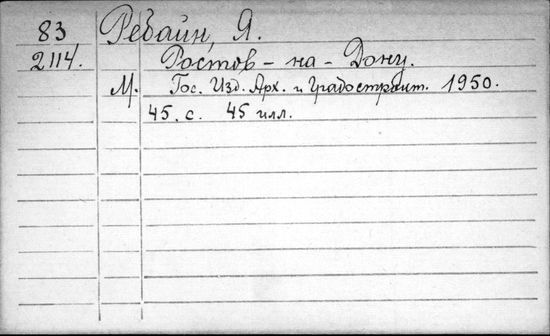 83 Ребайн, Я.
2114. Ростов-на-Дону.
М. Гос. Изд. Арх. и Градостроит. 1950.
45. с. 45 илл.